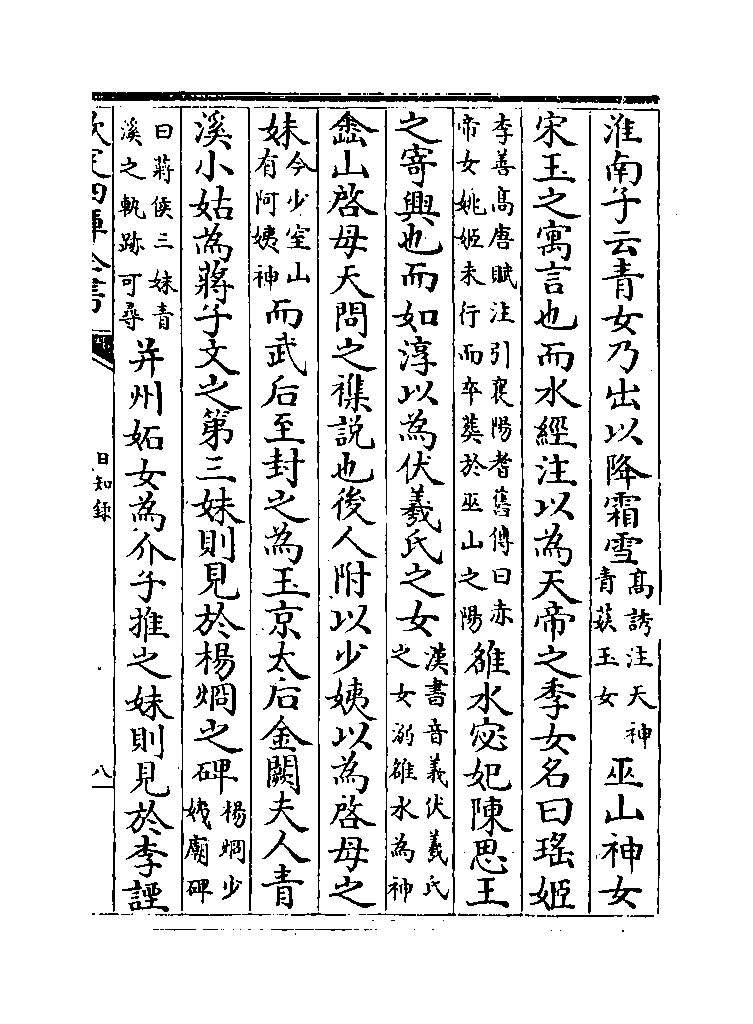 淮南子云青女乃出以降霜雪高誘注天神青䔢玉女巫山神女
宋玉之寓言也而水經注以為天帝之季女名曰瑤姬
李善高唐賦注引襄陽耆舊傳曰赤帝女姚姬未行而卒葬於巫山之陽雒水宓妃陳思王
之寄興也而如淳以為伏羲氏之女漢書音義伏羲氏之女溺雒水為神
嵞山啓母天問之襍説也後人附以少姨以為啓母之
妹今少室山有阿姨神而武后至封之為玉京太后金闕夫人青
溪小姑為蔣子文之第三妹則見於楊烱之碑楊烱少姨廟碑
曰蔣侯三妹青溪之軌跡可尋并州妬女為介子推之妹則見於李諲
欽定四庫全書
日知錄
八